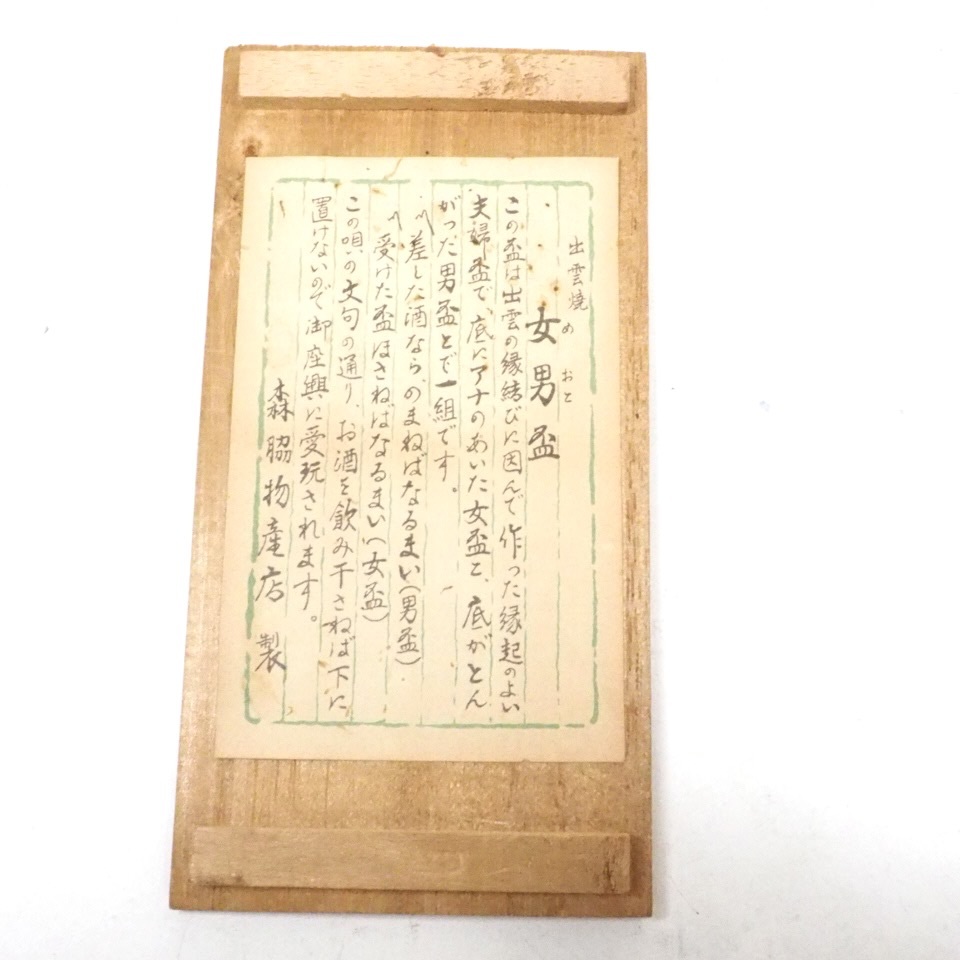 出雲焼
女男盃
め おと
この盃は出雲の縁結びに因んで作った縁起のよい
夫婦盃で、底にアナのあいた女盃と、底がとん
がった男盃とで一組です。
〽差した酒なら、のまねばなるまい(男盃)
〽受けた盃ほさねばなるまい(女盃)
この唄の文句の通り、お酒を飲み干さねば下に
置けないので御座興に愛玩されます。
森脇物産店 製